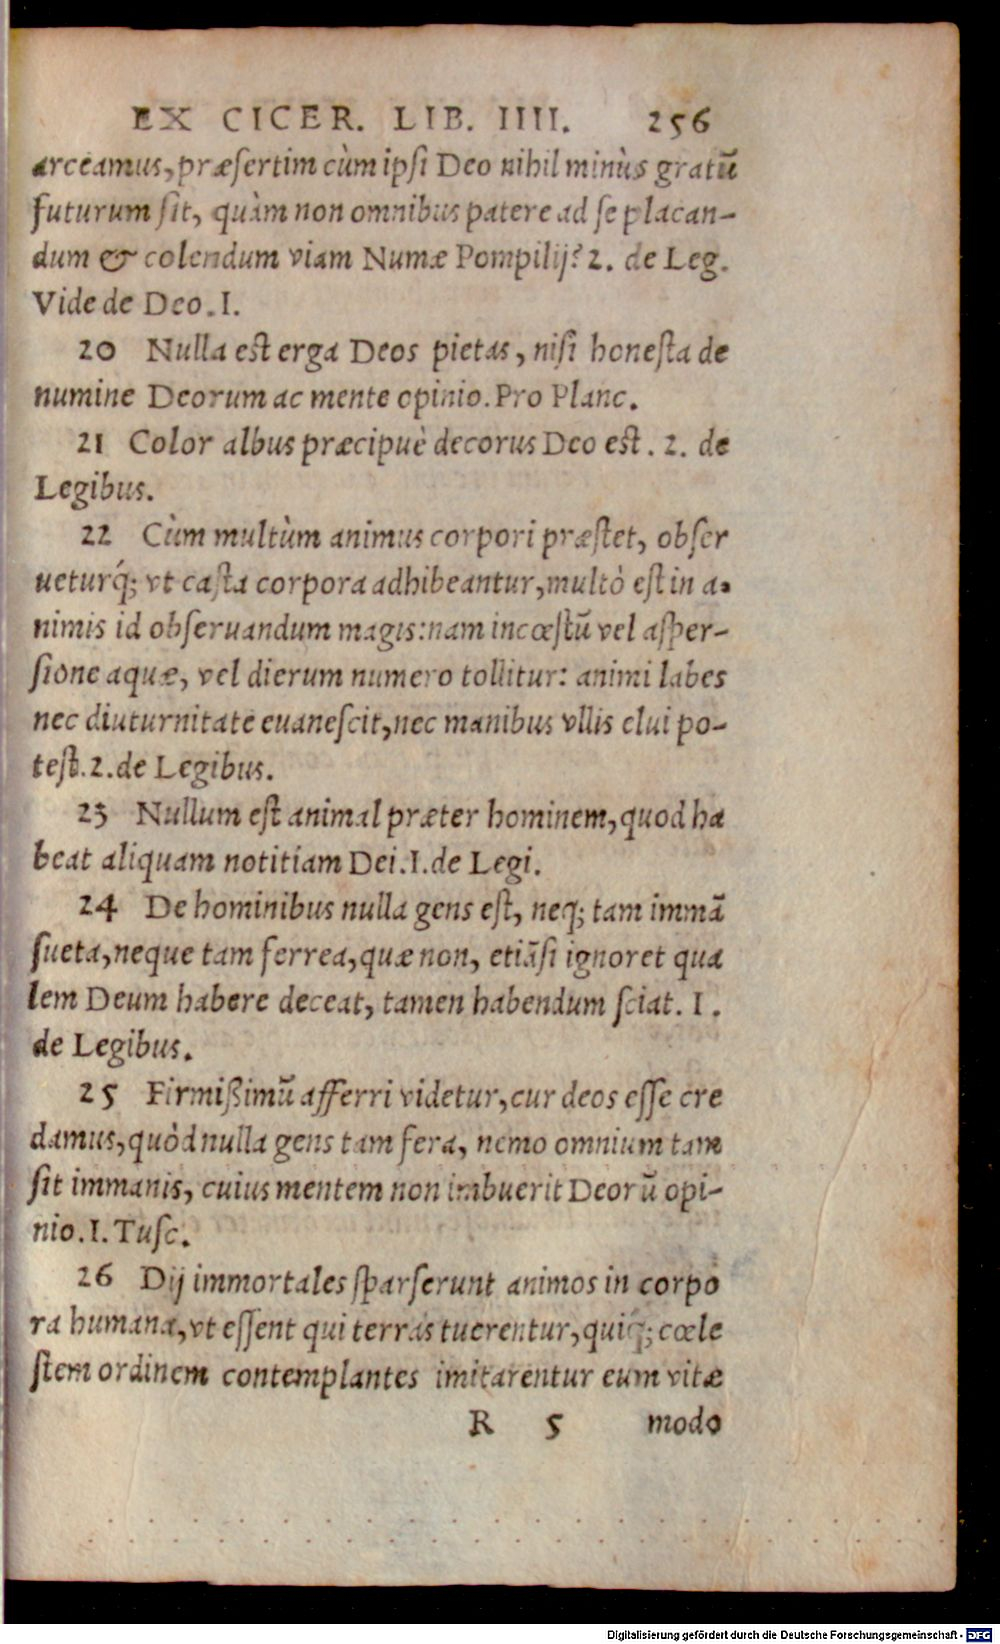 EX CICER. LIB. IIII. 256
arceamus, præsertim cùm ipsi Deo nihil minùs gratū
futurum sit, quàm non omnibus patere ad se placan-
dum & colendum viam Numæ Pompilij? 2. de Leg.
Vide de Deo. I.
20 Nulla est erga Deos pietas, nisi honesta de
numine Deorum ac mente opinio. Pro Planc.
21 Color albus præcipuè decorus Deo est. 2. de
Legibus.
22 Cùm multùm animus corpori præstet, obser
ueturq́; vt casta corpora adhibeantur, multò est in a-
nimis id obseruandum magis: nam incœstū vel asper-
sione aquæ, vel dierum numero tollitur: animi labes
nec diuturnitate euanescit, nec manibus vllis elui po-
test. 2. de Legibus.
23 Nullum est animal præter hominem, quod ha
beat aliquam notitiam Dei. I. de Legi.
24 De hominibus nulla gens est, neq; tam immā
sueta, neque tam ferrea, quæ non, etiāsi ignoret qua
lem Deum habere deceat, tamen habendum sciat. I.
de Legibus.
25 Firmißimū afferri videtur, cur deos esse cre
damus, quòd nulla gens tam fera, nemo omnium tam
sit immanis, cuius mentem non imbuerit Deorū opi-
nio. I. Tusc.
26 Dij immortales sparserunt animos in corpo
ra humana, vt essent qui terras tuerentur, quiq́; cœle
stem ordinem contemplantes imitarentur eum vitæ
R 5 modo
Digitalisierung gefördert durch die Deutsche Forschungsgemeinschaft - DFG